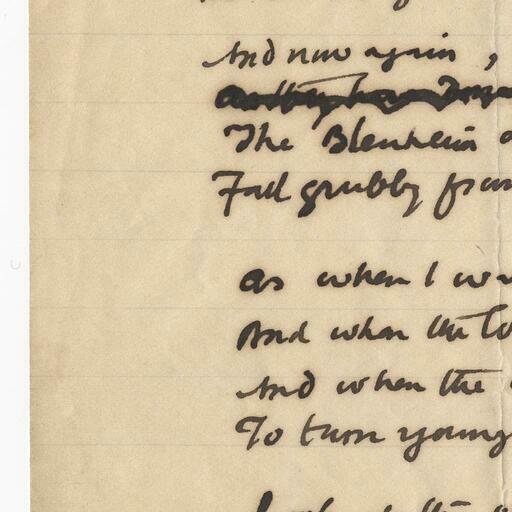 And now again,
The Blenheim
Fall grubby from
As when I w
And when the lo
And when the
To turn young